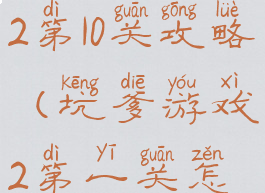 dì guān gōng lüè
2第10关攻略
kēng diē yóu xì
(坑爹游戏
dì yī guān zěn
2第一关怎